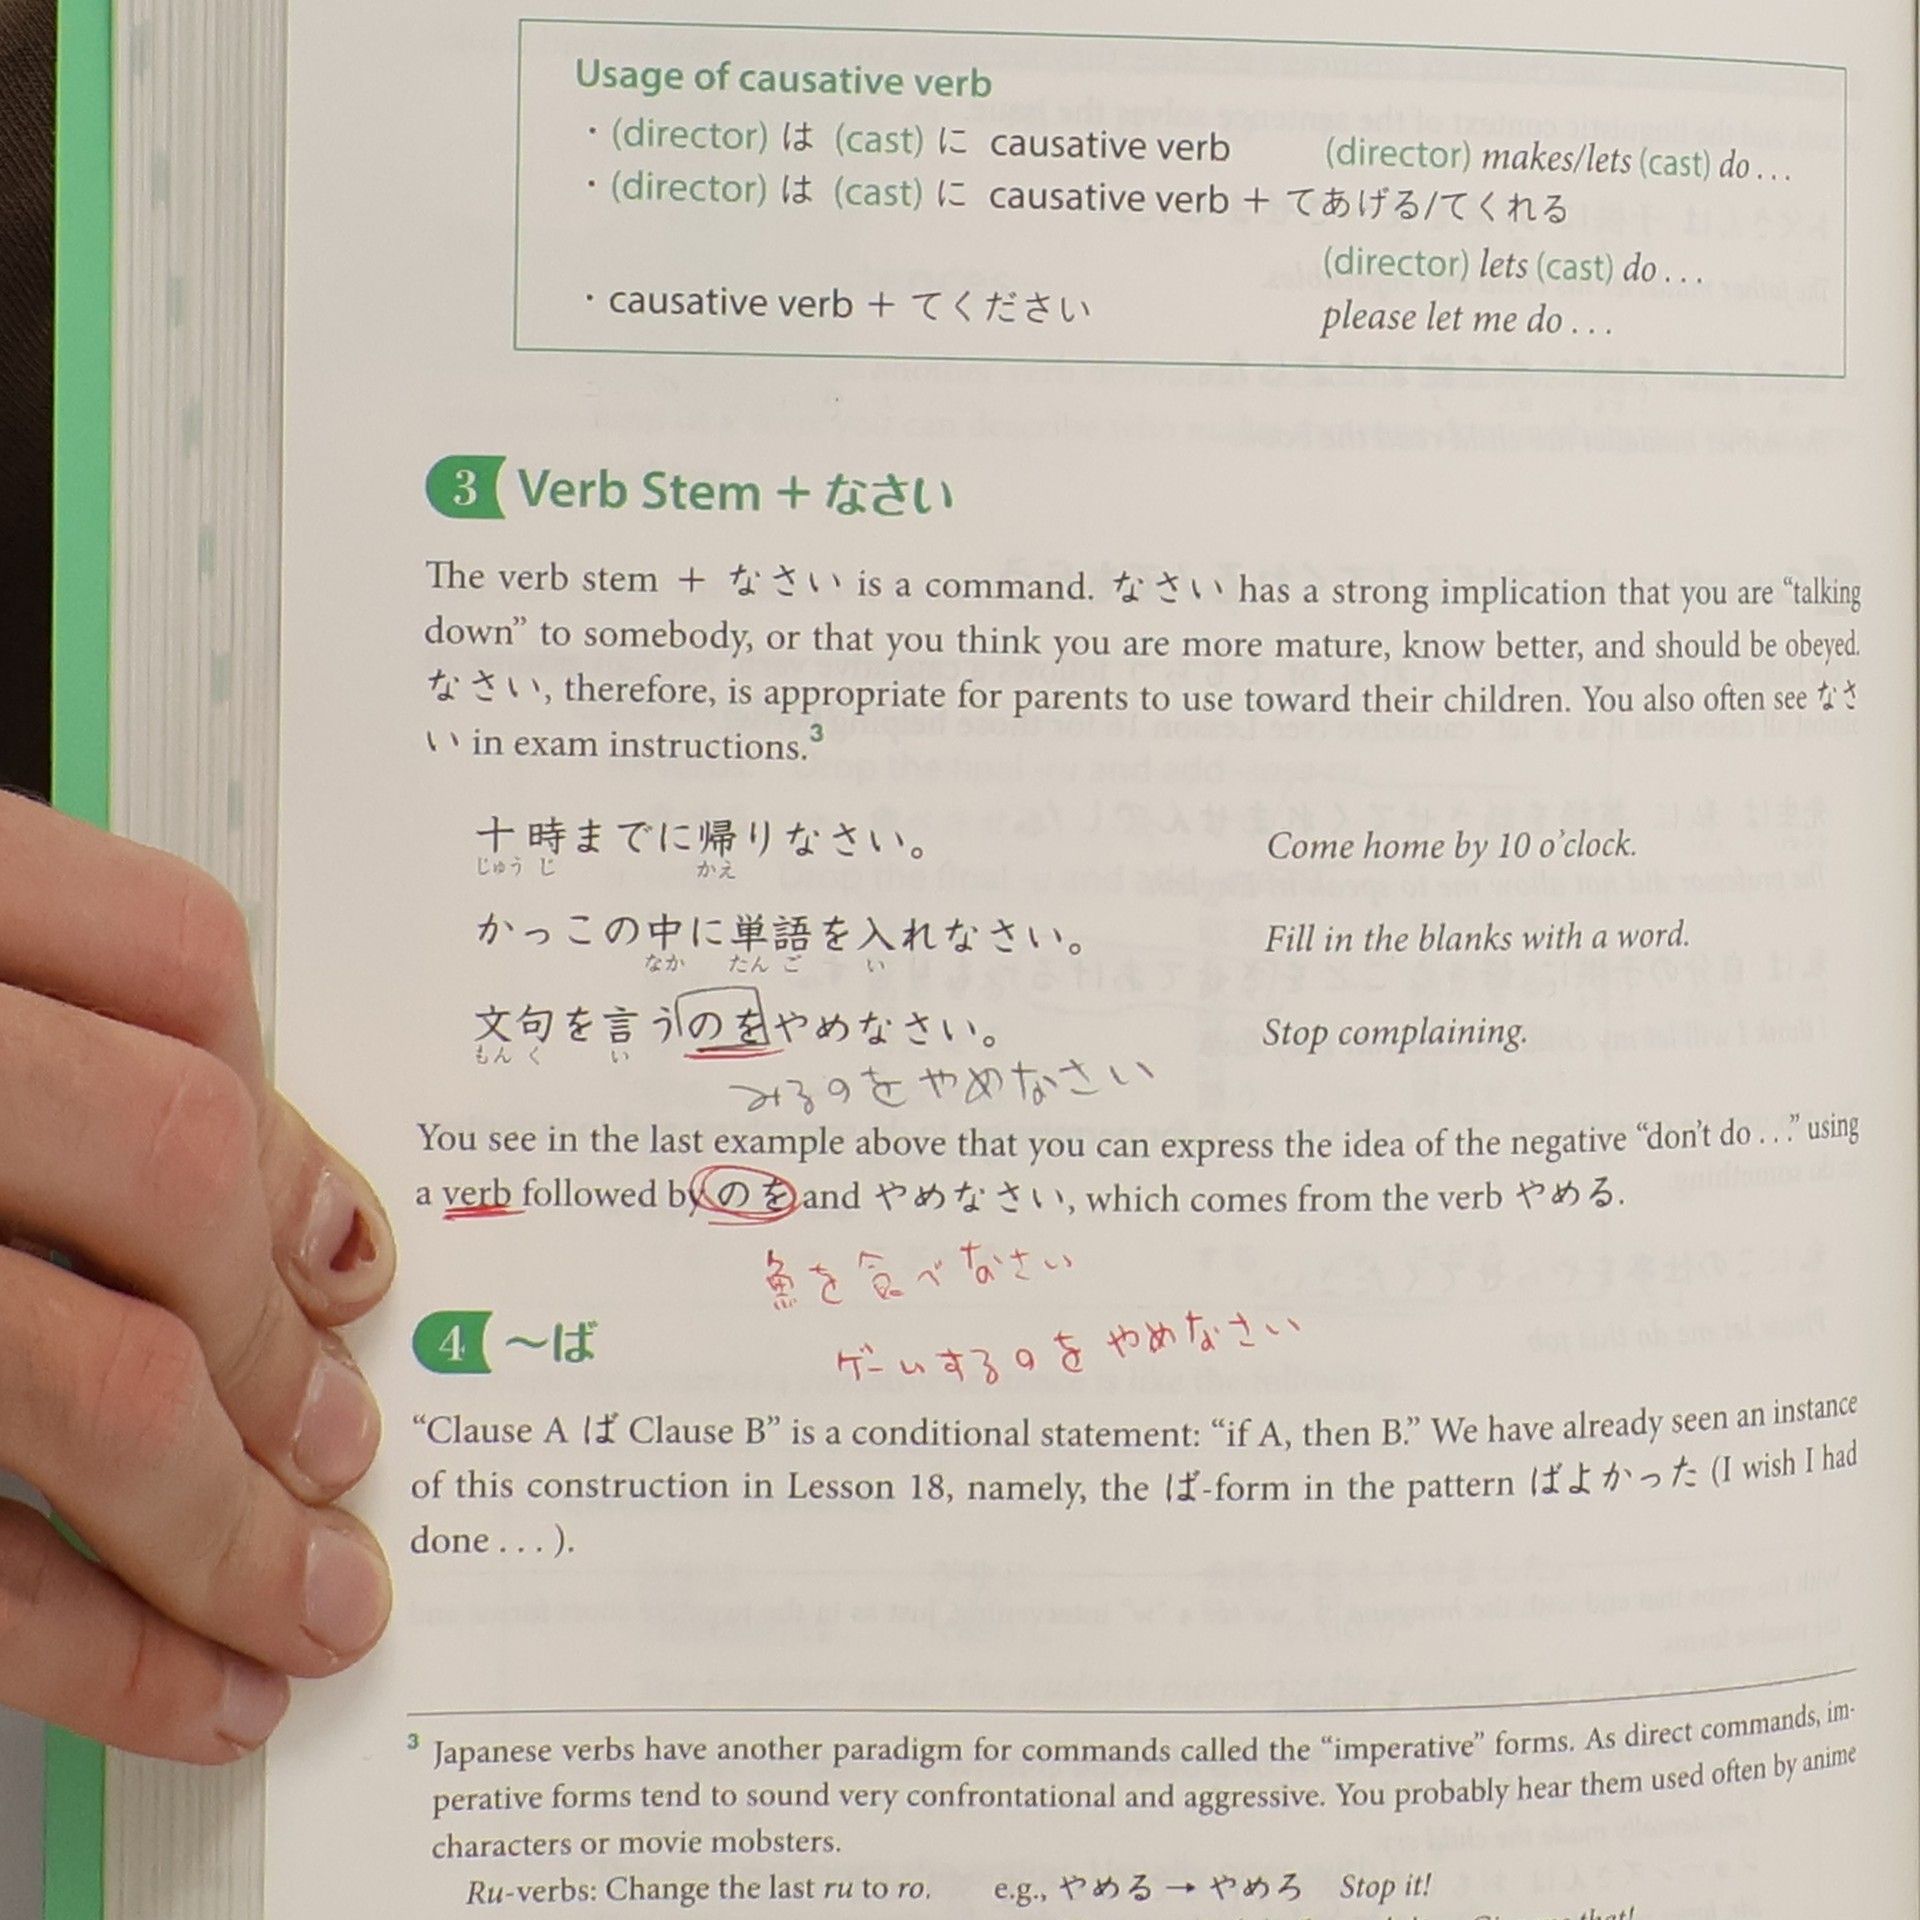 Usage of causative verb
・(director) は (cast) に causative verb (director) makes/lets (cast) do . . .
・(director) は (cast) に causative verb + てあげる/てくれる
(director) lets (cast) do . . .
・causative verb + てください please let me do . . .
3 Verb Stem + なさい
The verb stem + なさい is a command. なさい has a strong implication that you are “talking
down” to somebody, or that you think you are more mature, know better, and should be obeyed.
なさい, therefore, is appropriate for parents to use toward their children. You also often see なさ
い in exam instructions.3
十時までに帰りなさい。 Come home by 10 o’clock.
じゅう じ かえ
かっこの中に単語を入れなさい。 Fill in the blanks with a word.
なか たん ご い
文句を言うのをやめなさい。 Stop complaining.
もん く い
みるのをやめなさい
You see in the last example above that you can express the idea of the negative “don’t do . . .” using
a verb followed by のを and やめなさい, which comes from the verb やめる.
魚を食べなさい
4 〜ば
ゲームするのをやめなさい
“Clause A ば Clause B” is a conditional statement: “if A, then B.” We have already seen an instance
of this construction in Lesson 18, namely, the ば-form in the pattern ばよかった (I wish I had
done . . . ).
3 Japanese verbs have another paradigm for commands called the “imperative” forms. As direct commands, im-
perative forms tend to sound very confrontational and aggressive. You probably hear them used often by anime
characters or movie mobsters.
Ru-verbs: Change the last ru to ro. e.g., やめる → やめろ Stop it!